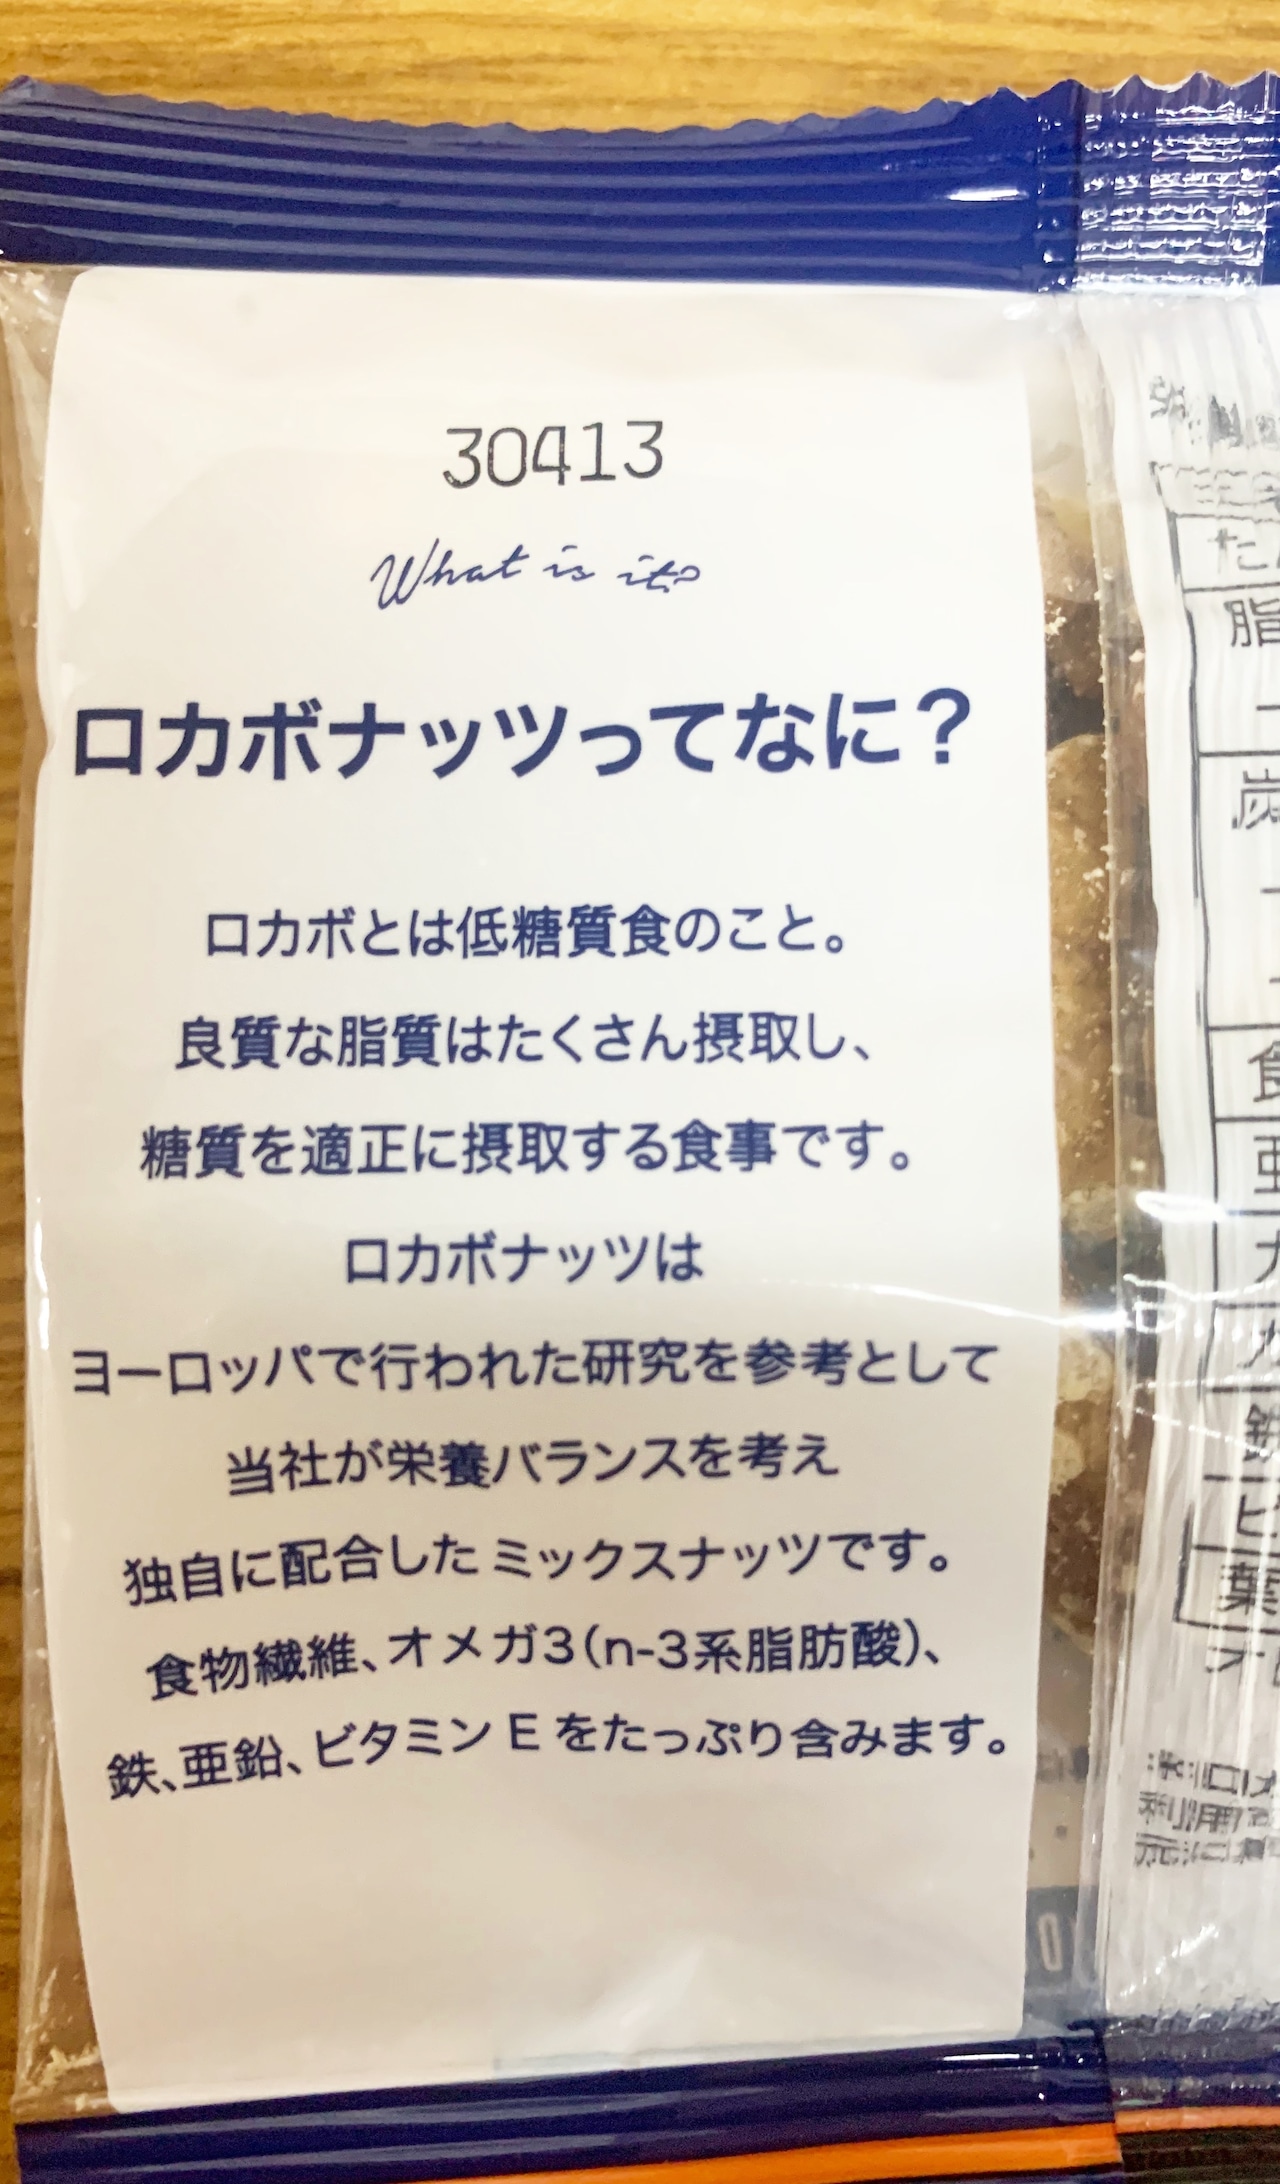 30413
What is it?
ロカボナッツってなに？
ロカボとは低糖質食のこと。
良質な脂質はたくさん摂取し、
糖質を適正に摂取する食事です。
ロカボナッツは
ヨーロッパで行われた研究を参考として
当社が栄養バランスを考え
独自に配合したミックスナッツです。
食物繊維、オメガ3(n-3系脂肪酸)、
鉄、亜鉛、ビタミン E をたっぷり含みます。
脂
炭
食
亜
鉄
葉